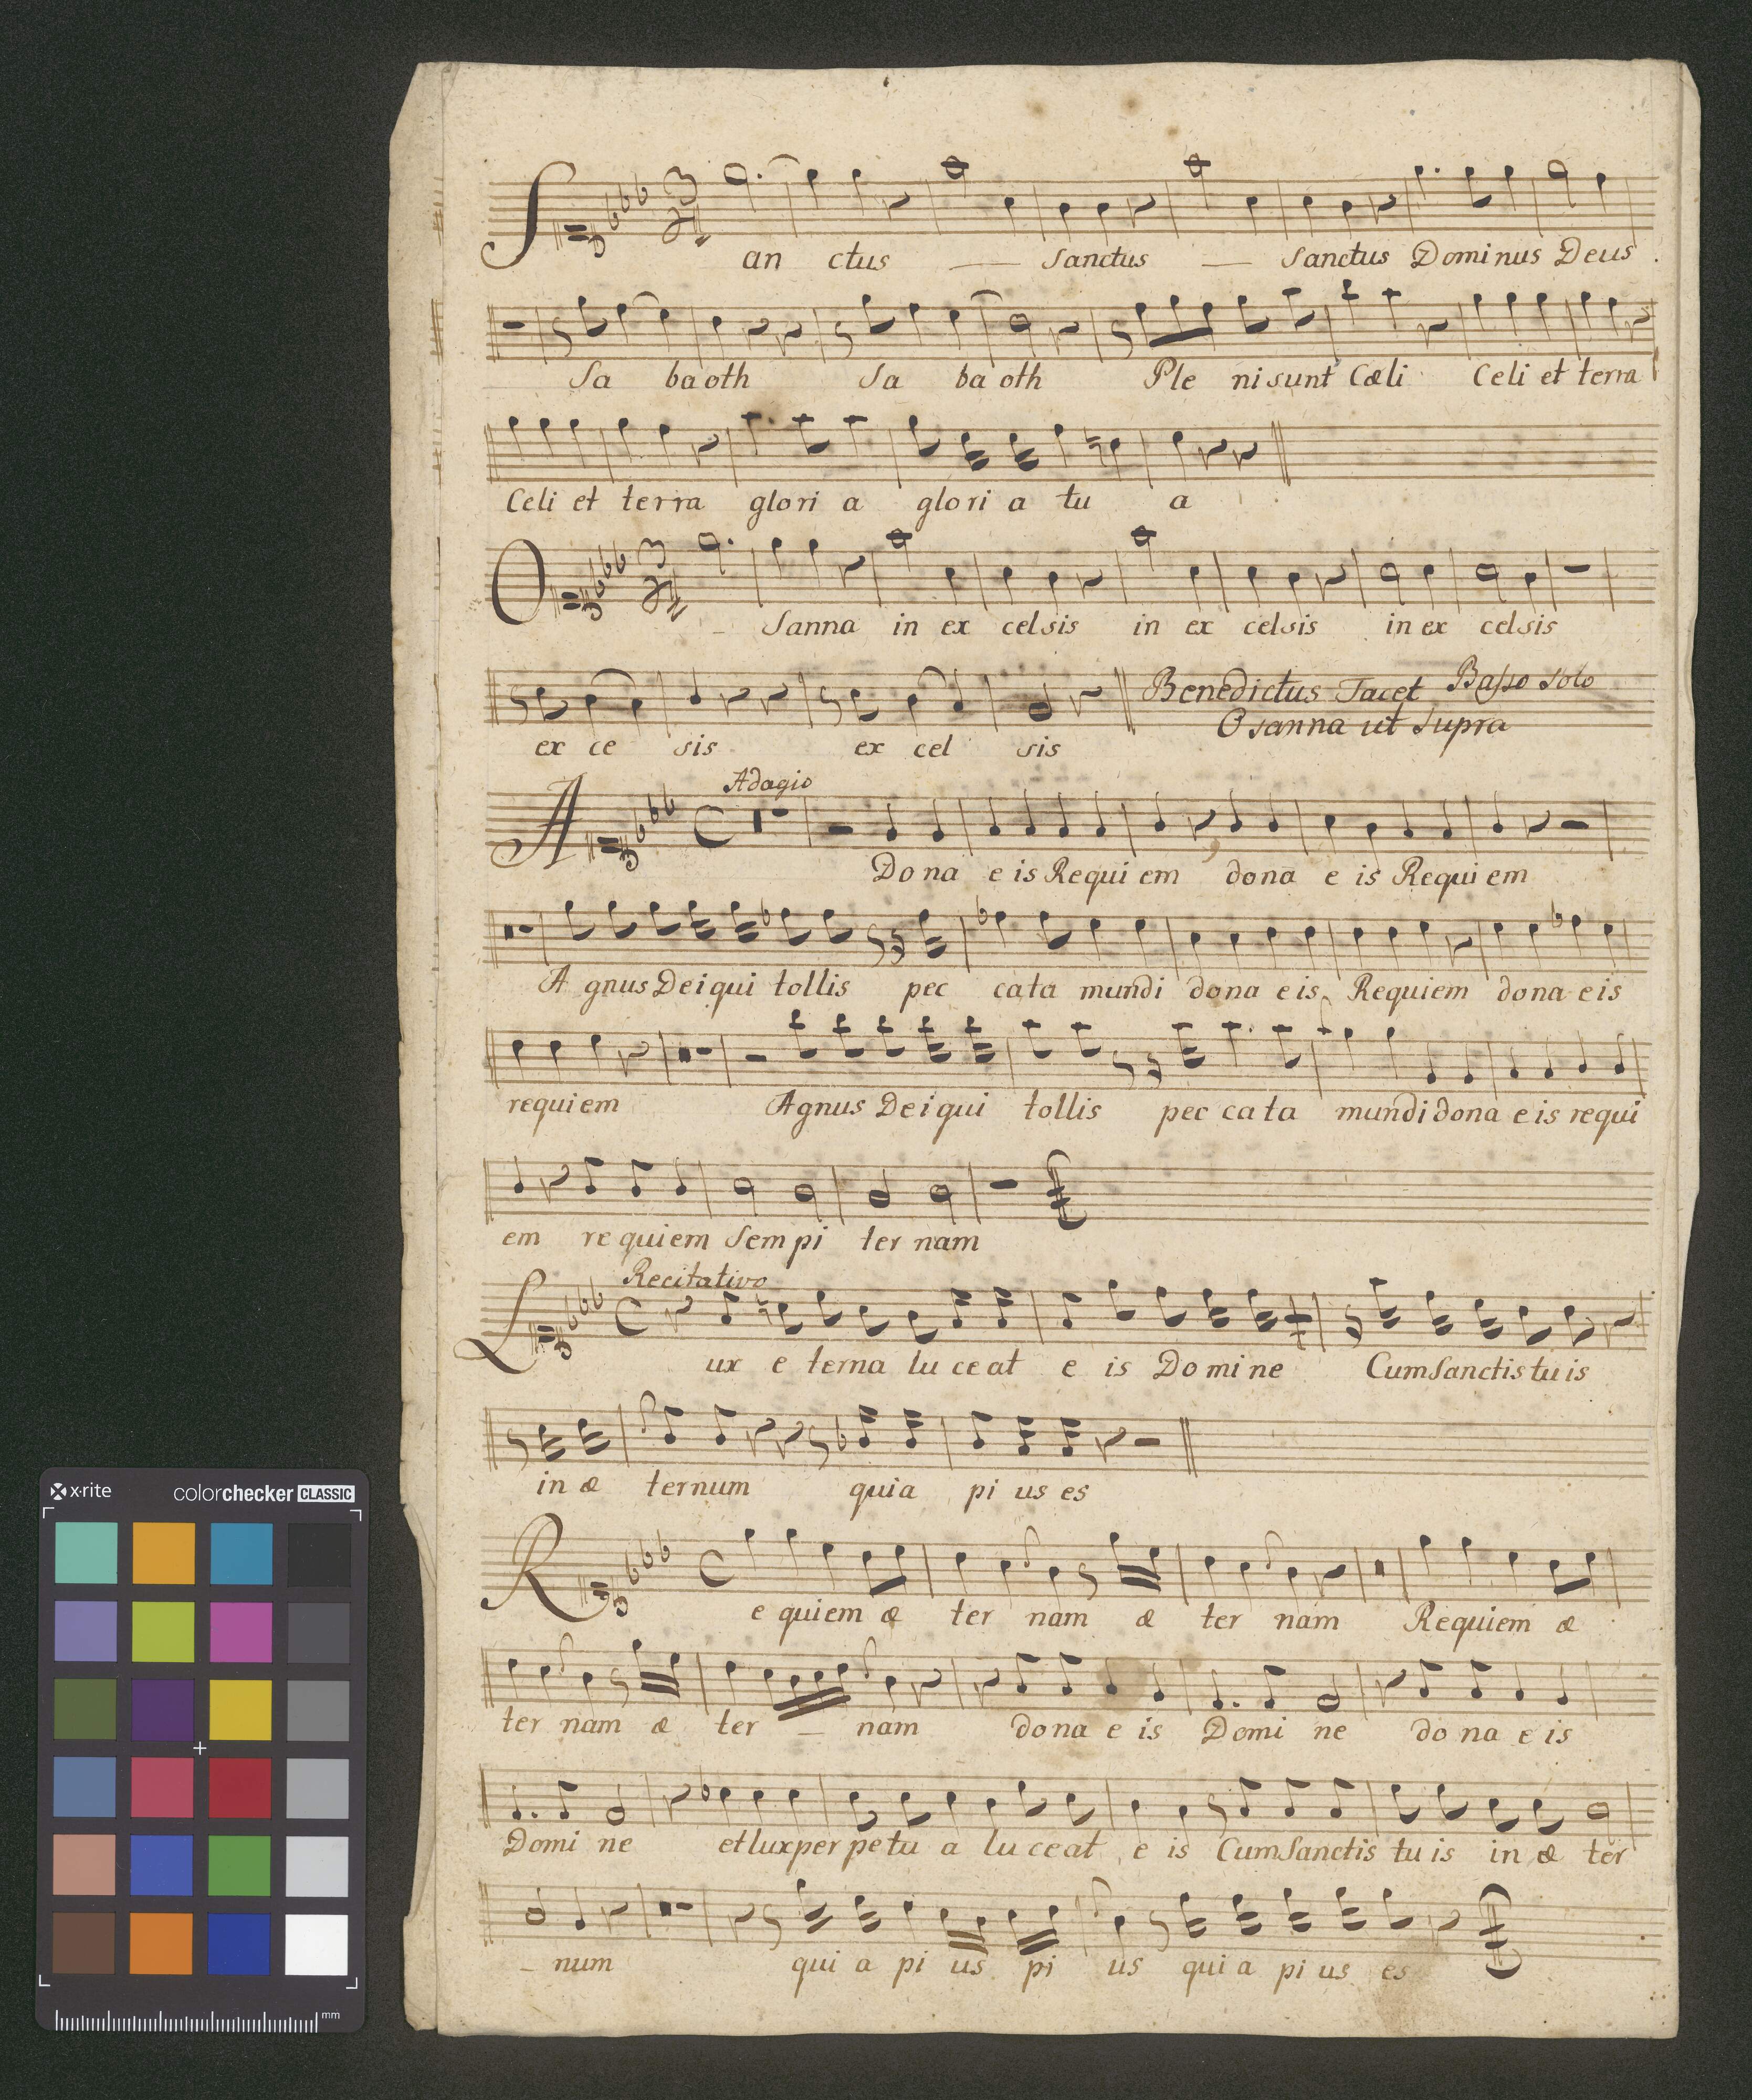 Sanctus — Sanctus — Sanctus Dominus Deus
Sa ba oth Sa ba oth Ple ni sunt Cæli Celi et terra
Celi et terra glori a glori a tu a
O - Sanna in ex celsis in ex celsis in ex celsis
ex ce sis ex cel sis Benedictus Tacet Basso Solo
Osanna ut Supra
Adagio
A Dona e is Requi em dona e is Requi em
A gnus Dei qui tollis pec cata mundi dona e is Requiem dona e is
requiem Agnus Dei qui tollis pec ca ta mundi dona e is requi
em re quiem Sem pi ter nam
Recitativo
Lux e terna lu ce at e is Domine Cum Sanctis tu is
in æ ternum quia pi us es
C
Re quiem æ ter nam æ ter nam Requiem æ
ter nam æ ter — nam dona e is Domi ne do na e is
Domi ne et lux per petu a lu ce at e is Cum Sanctis tu is in æ ter
- num qui a pi us pi us qui a pi us es
x·rite colorchecker CLASSIC
mm